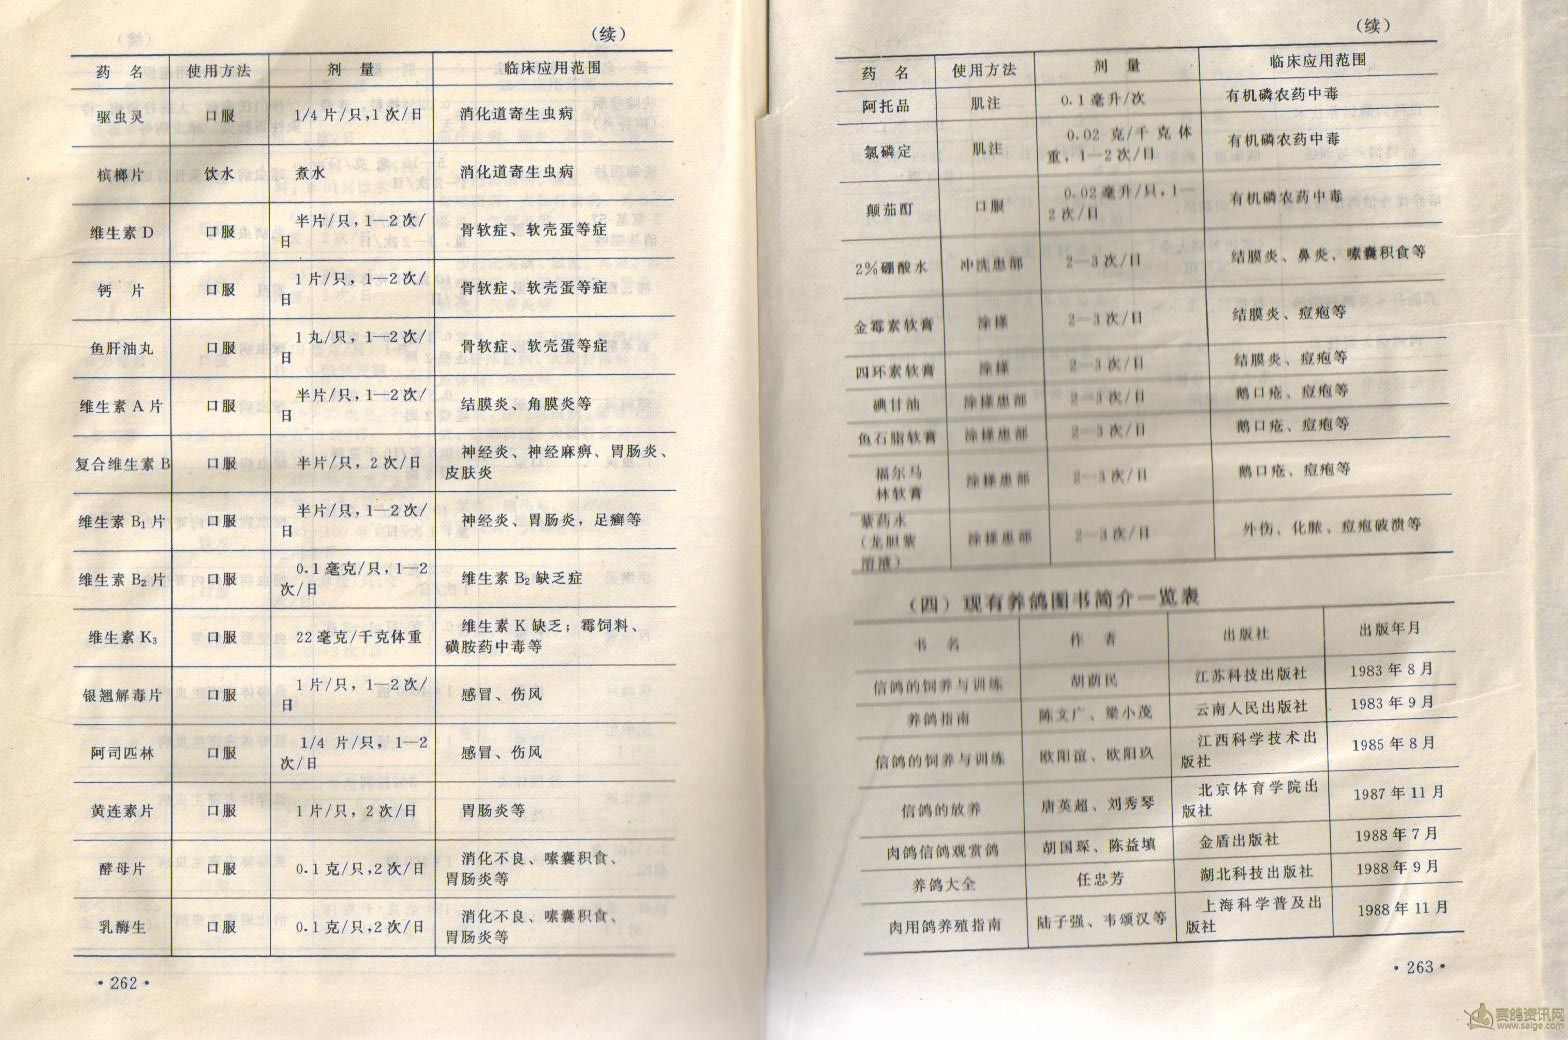 (续)
药 名 使用方法 剂 量 临床应用范围
驱虫灵 口服 1/4片/只,1次/日 消化道寄生虫病
槟榔片 饮水 煮水 消化道寄生虫病
维生素D 口服 半片/只,1—2次/
日 骨软症、软壳蛋等症
钙 片 口服 1片/只,1—2次/
日 骨软症、软壳蛋等症
鱼肝油丸 口服 1丸/只,1—2次/
日 骨软症、软壳蛋等症
维生素A片 口服 半片/只,1—2次/
日 结膜炎、角膜炎等
复合维生素B 口服 半片/只,2次/日 神经炎、神经麻痹、胃肠炎、
皮肤炎
维生素B₁片 口服 半片/只,1—2次/
日 神经炎、胃肠炎,足癣等
维生素B₂片 口服 0.1毫克/只,1—2
次/日 维生素B₂缺乏症
维生素K₃ 口服 22毫克/千克体重 维生素K缺乏;霉饲料、
磺胺药中毒等
银翘解毒片 口服 1片/只,1—2次/
日 感冒、伤风
阿司匹林 口服 1/4片/只,1—2
次/日 感冒、伤风
黄连素片 口服 1片/只,2次/日 胃肠炎等
酵母片 口服 0.1克/只,2次/日 消化不良、嗉囊积食、
胃肠炎等
乳酶生 口服 0.1克/只,2次/日 消化不良、嗉囊积食、
胃肠炎等
·262·
(续)
药 名 使用方法 剂 量 临床应用范围
阿托品 肌注 0.1毫升/次 有机磷农药中毒
氯磷定 肌注 0.02克/千克体
重,1—2次/日 有机磷农药中毒
颠茄酊 口服 0.02毫升/只,1—
2次/日 有机磷农药中毒
2%硼酸水 冲洗患部 2—3次/日 结膜炎、鼻炎、嗉囊积食等
金霉素软膏 涂搽 2—3次/日 结膜炎、痘疱等
四环素软膏 涂搽 2—3次/日 结膜炎、痘疱等
碘甘油 涂搽患部 2—3次/日 鹅口疮、痘疱等
鱼石脂软膏 涂搽患部 2—3次/日 鹅口疮、痘疱等
福尔马
林软膏 涂搽患部 2—3次/日 鹅口疮、痘疱等
紫药水
(龙胆紫
溶液) 涂搽患部 2—3次/日 外伤、化脓、痘疱破溃等
(四)现有养鸽图书简介一览表
书 名 作 者 出版社 出版年月
信鸽的饲养与训练 胡荫民 江苏科技出版社 1983年8月
养鸽指南 陈文广、梁小茂 云南人民出版社 1983年9月
信鸽的饲养与训练 欧阳谊、欧阳玖 江西科学技术出
版社 1985年8月
信鸽的放养 唐英超、刘秀琴 北京体育学院出
版社 1987年11月
肉鸽信鸽观赏鸽 胡国琛、陈益填 金盾出版社 1988年7月
养鸽大全 任忠芳 湖北科技出版社 1988年9月
肉用鸽养殖指南 陆子强、韦颂汉等 上海科学普及出
版社 1988年11月
·263·
赛鸽资讯网
www.saige.com